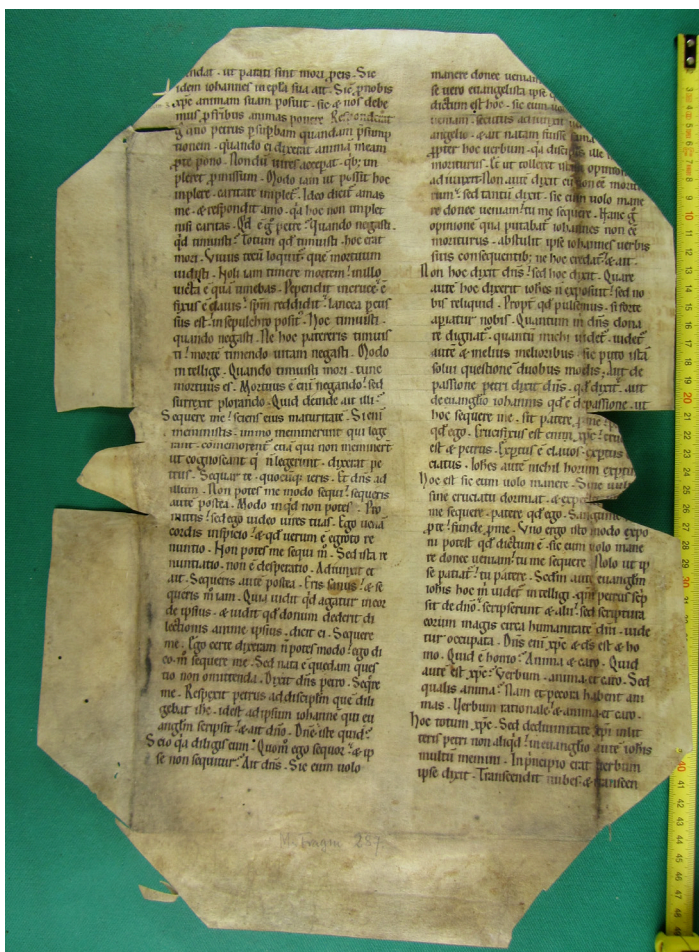 endat · ut parati sint mori p eis · Sic
idem iohannes in epła sua ait · Sic̄ p nobis
xp̄c animam suam posuit · sic & nos debe
mus p fr̄ibus animas ponere
nonem · quando ei dixerat animā meam
p te pono · Nondū vires accepat · qb; im
pleret pmissum · Modo iam ut possit hoc
implere · caritate implet̉ · Ideo dicit amas
me · & respondit amo · qa hoc non implet
nisi caritas · Qd̄ ē g̊ petre? Quando negasti ·
qd̄ timuisti? Totum qd̄ timuisti · hoc erat
mori · Vivus tecū loquit̉ · quē mortuum
vidisti · Noli iam timere mortem · in illo
victa ē quā timebas · Pependit in cruce · c̄
fixus ē clavis · sp̄m reddidit · lancea pcus
sus est · in sepulchro posit9 · Hoc timuisti ·
quando negasti · Ne hoc patereris timuis
ti · mortē timendo vitam negasti · Modo
intellige · Quando timuisti mori · tunc
mortuus es · Mortuus ē eni negando · sed
surrexit plorando · Quid deinde ait illi?
Sequere me · sciens eius maturitatē · Si eni
meministis · immo meminerunt qui lege
rant · comemorent̉ etiā qui non meminert̄
ut cognoscant q̄ n̄ legerunt · dixerat pe
trus · Sequar te · quocūq; ieris · Et dn̄s ad
illum · Non potes me modo sequi · sequeris
autē postea · Modo inqd̄ non potes · Pro
mittis · sed ego video vires tuas · Ego venā
cordis inspicio · & qd̄ verum ē egroto re
nuntio · Non potes me sequi m̊ · Sed ista re
nuntiatio · non ē desperatio · Adiunxit et
ait · Sequeris autē postea · Eris sanus · & se
queris m̊ iam · Quia vidit qd̄ agatur in cor
de ipsius · & vidit qd̄ donum dederit di
lectionis anime ipsius · dicit ei · Sequere
me · Ego certe dixeram n̄ potes modo · ego di
co · m̊ sequere me · Sed nata ē quedam ques
tio non omittenda · Dixit dn̄s petro · Seqre
me · Respexit petrus ad discipłm quē dili
gebat ihc̄ · idest ad ipsum iohannē qui eu
anglm̄ scripsit · & ait dn̄o · Dn̄e iste quid?
Scio qa diligis eum · Quom̊ ego sequor · & ip
se non sequitur? Ait dn̄s · Sic eum volo
manere donec veniam
se vero euangelista ipse
dictum est hoc · sic eum vo
veniam · secutus adiunxit
angelio · & ait natam fuisse
ppter hoc verbum · qa discipłs ille
moriturus · Et ut tolleret opinio
adiunxit · Non autē dixit eū non ēē moritu
rum · sed tantū dixit · sic eum volo mane
re donec veniam · tu me sequere · Hanc g̊
opinionē qua putabat̉ iohannes non ēē
moriturus · abstulit ipse iohannes verbis
suis consequentib; ne hoc credat̉ · & ait ·
Non hoc dixit dn̄s · sed hoc dixit · Quare
autē hoc dixerit ioh̄s n̄ exposuit · sed no
bis reliquid · Propt̉ qd̄ pulsemus · si forte
apiatur nobis · Quantum m̄ dn̄s dona
re dignat̉ · quantū michi videt̉ · videt̉
autē & melius melioribus · sic puto istā
solvi questionē duobus modis · Aut de
passione petri dixit dn̄s · qd̄ dixit · aut
de euanglio iohannis qd̄ ē de passione · ut
hoc sequere me · sit patere p me
qd̄ ego · Crucifixus est enim xp̄c ·
est & petrus · Exptus ē clavos · exptus
ciatus · Ioh̄s autē nichil horum expt9
hoc est sic eum volo manere · Sine
sine cruciatu dormiat · & expectet
me sequere · patere qd̄ ego · Sanguinē
p te · funde p me · Uno ergo isto modo expo
ni potest qd̄ dictum ē · sic eum volo mane
re donec veniam · tu me sequere · Nolo ut ip
se patiat̉ · tu patere · Secdm̄ autē euanglm̄
ioh̄is hoc m̄ videt̉ intelligi · qm̄ petrus scp
sit de dn̄o · scripserunt & alii · sed scriptura
eorum magis circa humanitatē dn̄i · vide
tur occupata · Dn̄s eni xp̄c & ds̄ est & ho
mo · Quid ē homo? Anima & caro · Quid
autē est xp̄c? Verbum · anima et caro · Sed
qualis anima? Nam et pecora habent ani
mas · Verbum rationale · & anima et caro ·
hoc totum xp̄c · Sed de divinitate xp̄i in lit
teris petri non aliqd̄ · in euanglio autē ioh̄is
multū memini · In principio erat verbum
ipse dixit · Transcendit nubes · & transcen
287